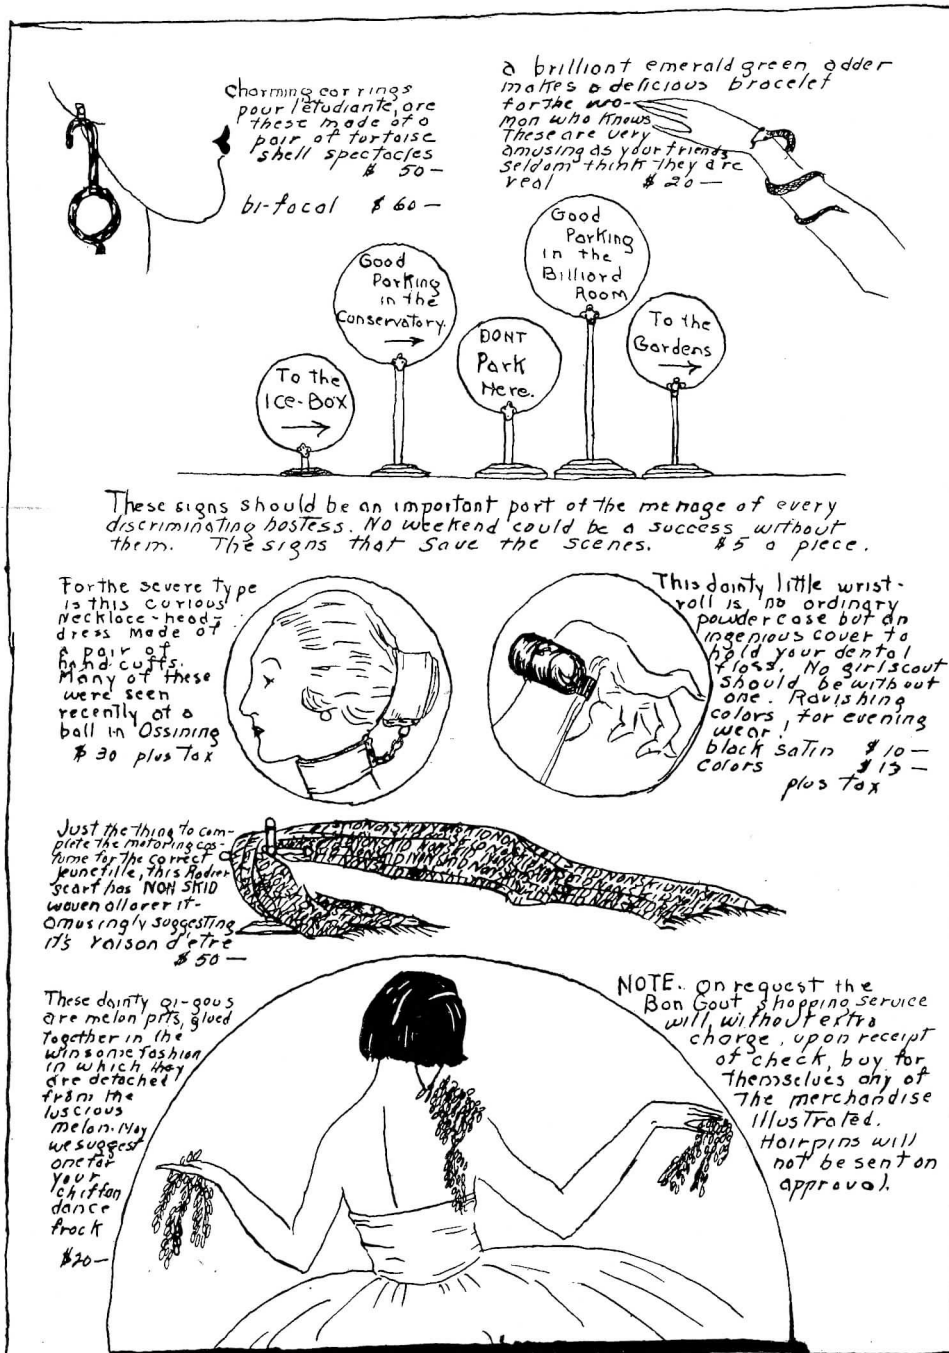 Charming ear rings
pour l'etudiante, are
these made of a
pair of tortoise
shell spectacles
$ 50 —
bi-focal $ 60 —
a brilliant emerald green adder
makes a delicious bracelet
for the wo-
man who knows
These are very
amusing as your friends
seldom think they are
real $ 20 —
Good
Parking
in the
Conservatory.
Good
Parking
in the
Billiard
Room
To the
Ice-Box
DONT
Park
Here.
To the
Gardens
These signs should be an important part of the menage of every
discriminating hostess. No weekend could be a success without
them. The signs that save the scenes. $5 a piece.
For the severe type
is this curious
necklace-head-
dress made of
a pair of
hand cuffs.
Many of these
were seen
recently at a
ball in Ossining
$ 30 plus tax
This dainty little wrist-
roll is no ordinary
powder case but an
ingenious cover to
hold your dental
floss. No girl scout
should be without
one. Ravishing
colors, for evening
wear!
black satin $ 10 —
colors $ 15 —
plus tax
Just the thing to com-
plete the motoring cos-
tume for the correct
jeunefille, this Rodier
scarf has NON SKID
woven all over it-
amusingly suggesting
it's raison d'etre
$ 50 —
These dainty gi-gous
are melon pits, glued
together in the
winsome fashion
in which they
are detached
from the
luscious
melon. May
we suggest
one for
your
chiffon
dance
frock
$20 —
NOTE. On request the
Bon Gout shopping service
will, without extra
charge, upon receipt
of check, buy for
themselves any of
the merchandise
illustrated.
Hairpins will
not be sent on
approval.